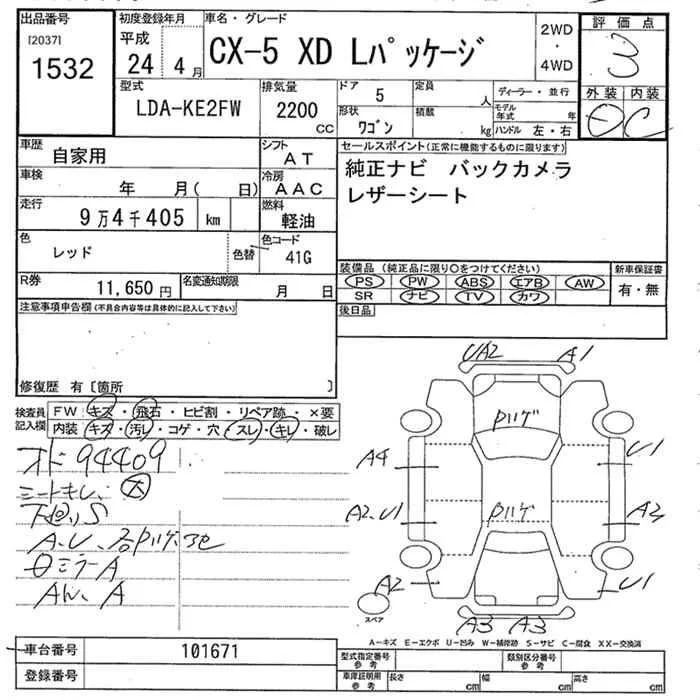 出品番号
[2037]
1532
初度登録年月
平成
24 4月
車名・グレード
CX-5 XD Lパッケージ
2WD
・
4WD
評価点
3
型式
LDA-KE2FW
排気量
2200
CC
ドア
5
定員
人
ディーラー・並行
形状
ワゴン
積載
kg
モデル年式
年
ハンドル 左・右
外装 内装
C
車歴
自家用
シフト
AT
車検
年 月( 日)
冷房
AAC
走行
9万4千405 km
燃料
軽油
色
レッド
色替
色コード
41G
R券
11,650円
名変通知期限
月 日
セールスポイント(正常に機能するものに限ります)
純正ナビ バックカメラ
レザーシート
装備品(純正品に限り〇をつけてください)
PS PW ABS エアB AW
SR ナビ TV カワ
新車保証書
有・無
後日品
注意事項申告欄(不具合内容等は具体的に記入して下さい)
修復歴 有〔箇所 〕
検査員
記入欄
FW キズ・飛石・ヒビ割・リペア跡・×要
内装 キズ・汚レ・コゲ・穴 スレ・キレ・破レ
94409
シートキレ、大
A
A
UA2 A1
A4 U1
A2、U1 A2
A2 U1
A3 A3
スペア
A-キズ E-エクボ U-凹み W-補修跡 S-サビ C-腐食 XX-交換済
車台番号 101671
登録番号
型式指定番号
参考
類別区分番号
参考
車庫証明用
参考
長さ cm 幅 cm 高さ cm